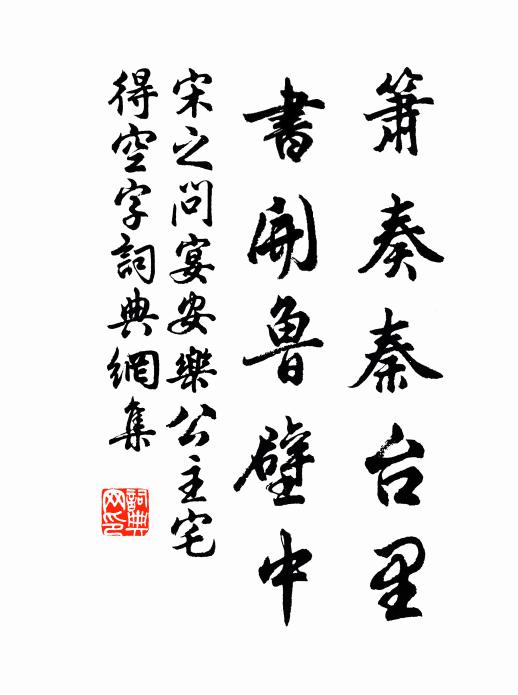 箫奏秦台里
書開魯壁中
宋之问宴安樂公主宅
得空字詞典網集
詞典网印